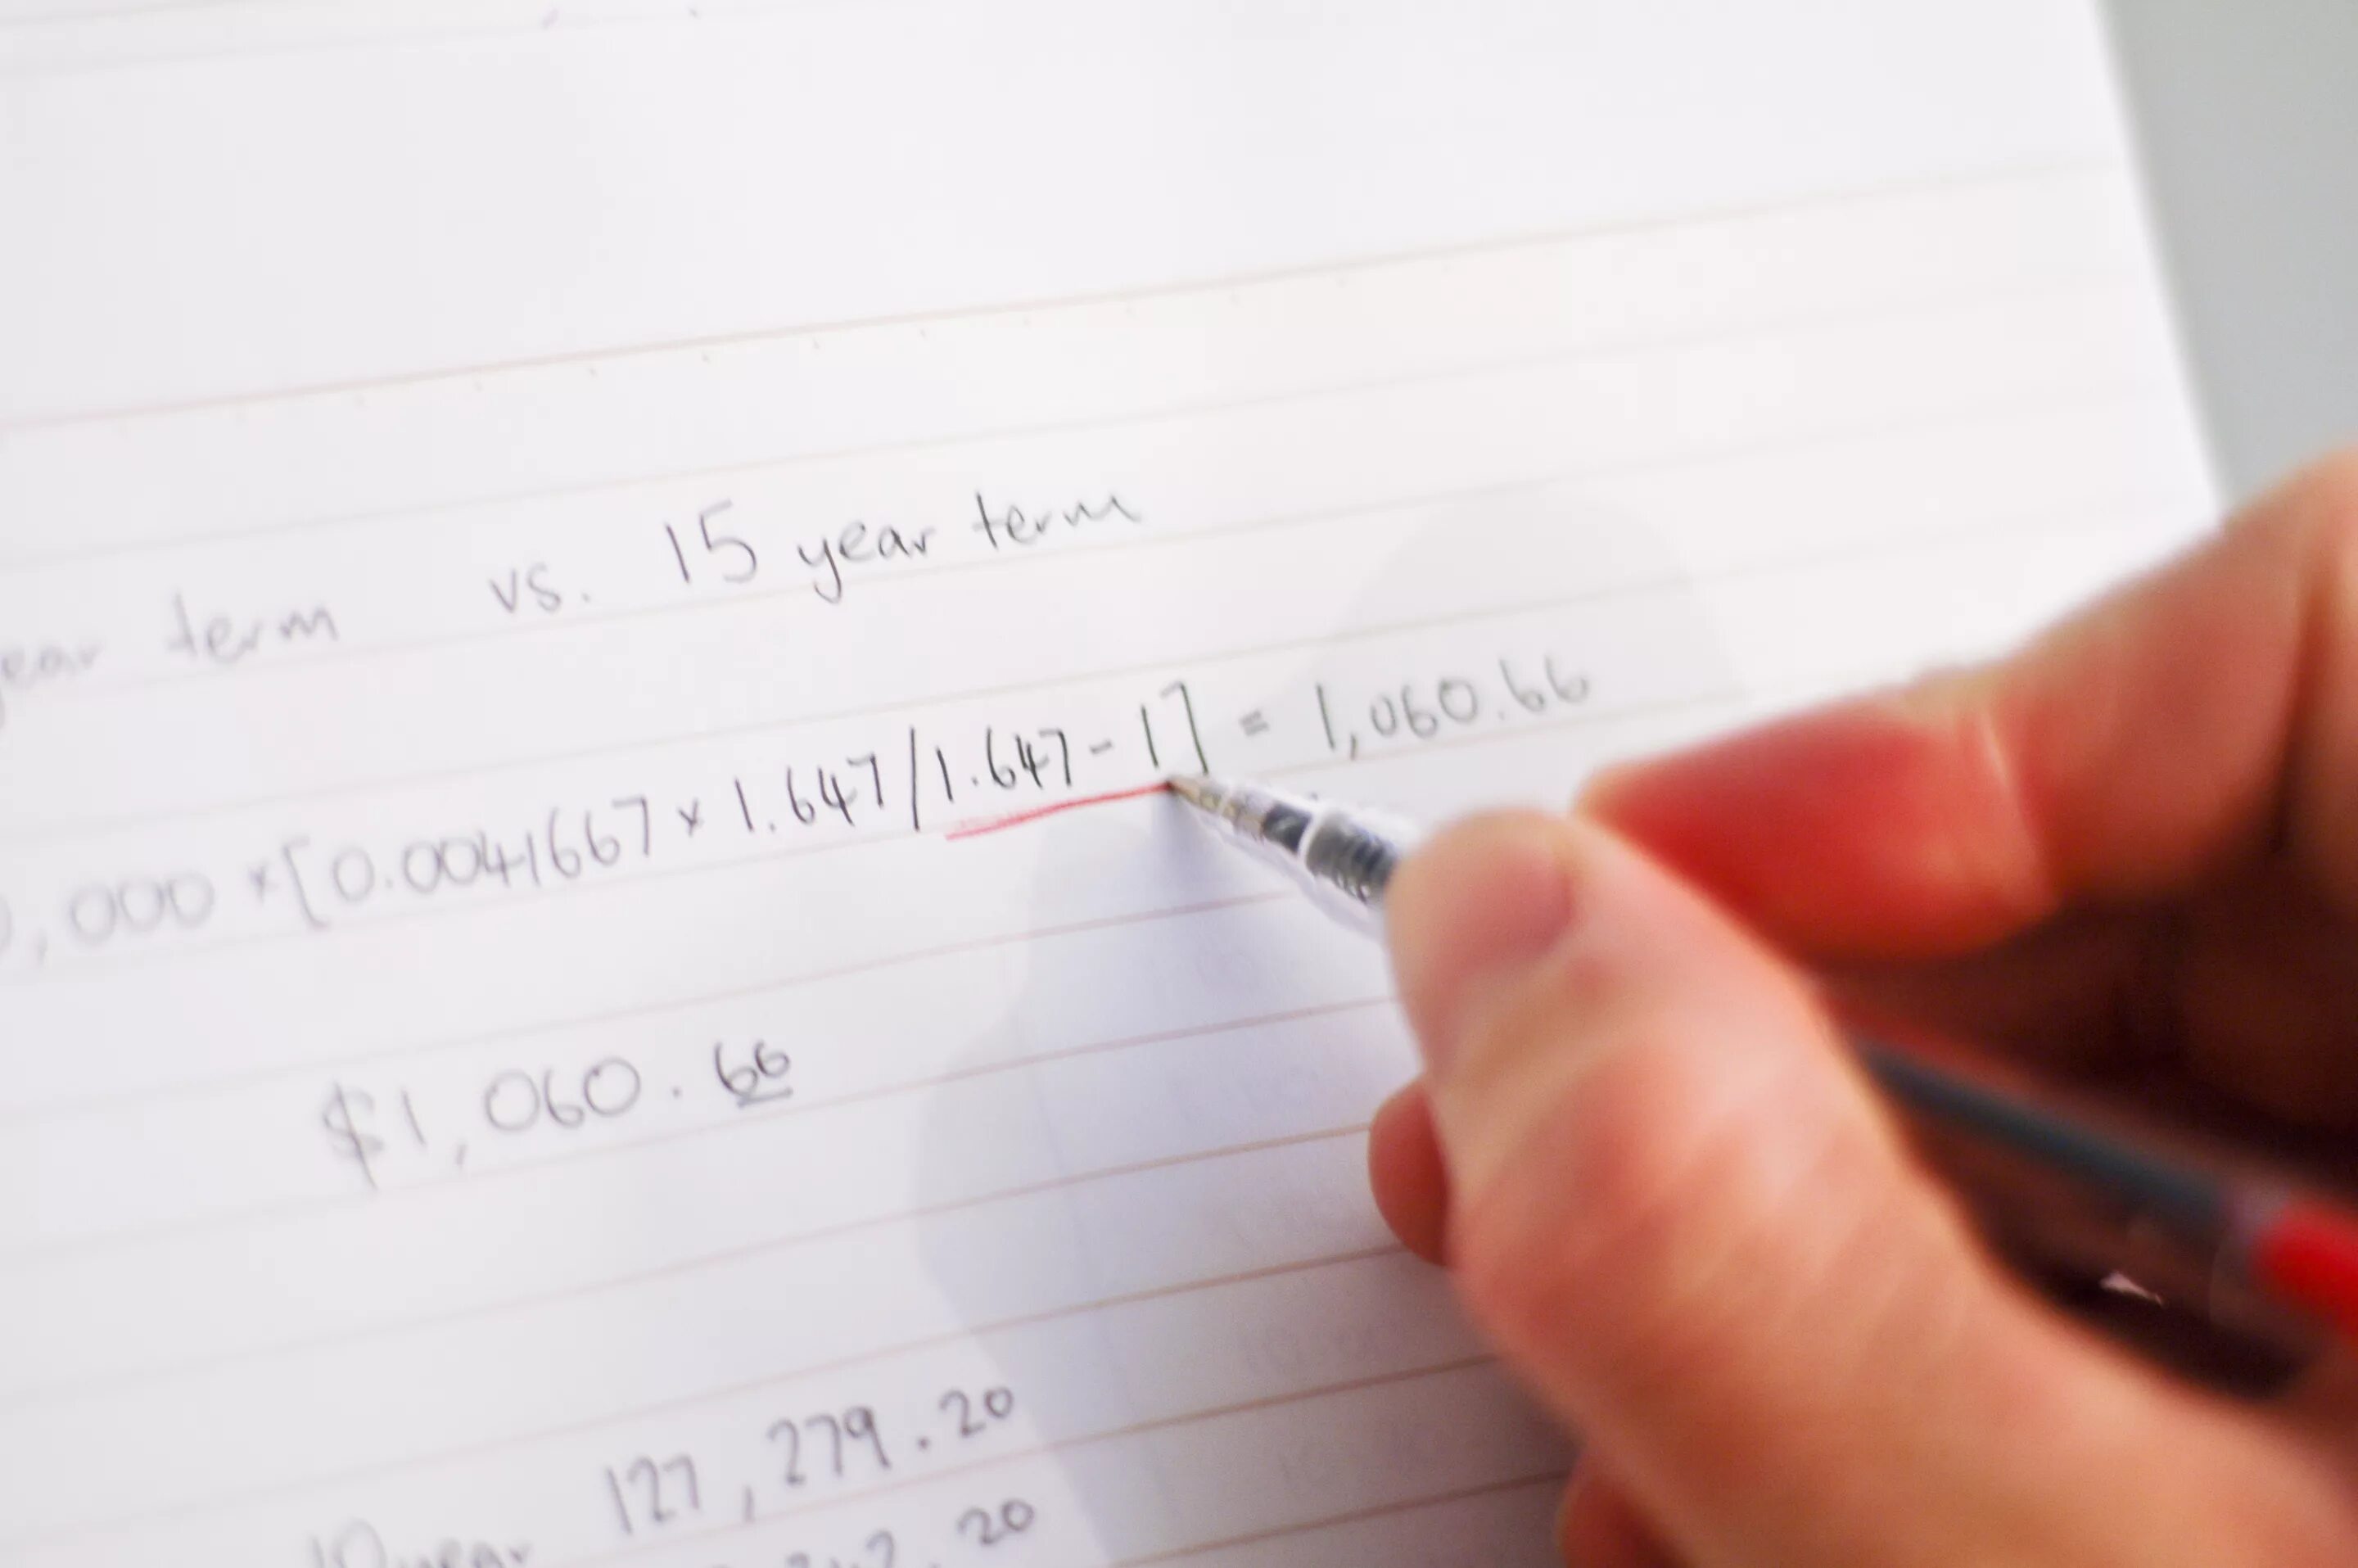 term vs. 15 year term
,000 x [0.0041667 x 1.647/1.647-1] = 1,060.66
$1,060.66
127,279.20
10 year
.20